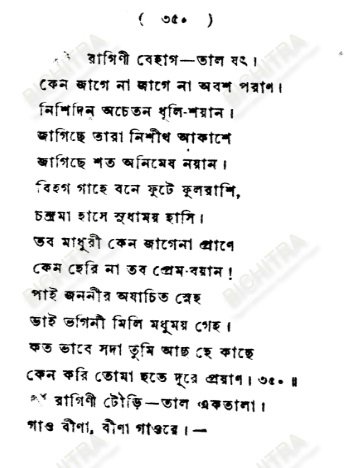 ( ৩৫০ )
রাগিণী বেহাগ—তাল যৎ।
কেন জাগে না জাগে না অবশ পরাণ।
নিশিদিন অচেতন ধূলি-শয়ান।
জাগিছে তারা নিশীথ আকাশে
জাগিছে শত অনিমেষ নয়ান।
বিহগ গাহে বনে ফুটে ফুলরাশি,
চন্দ্রমা হাসে সুধাময় হাসি।
তব মাধুরী কেন জাগেনা প্রাণে
কেন হেরি না তব প্রেম-বয়ান!
পাই জননীর অযাচিত স্নেহ
ভাই ভগিনী মিলি মধুময় গেহ।
কত ভাবে সদা তুমি আছ হে কাছে
কেন করি তোমা হতে দূরে প্রয়াণ। ৩৫০ ॥
রাগিণী টৌড়ি—তাল একতালা।
গাও বীণা, বীণা গাওরে।—
BICHITRA